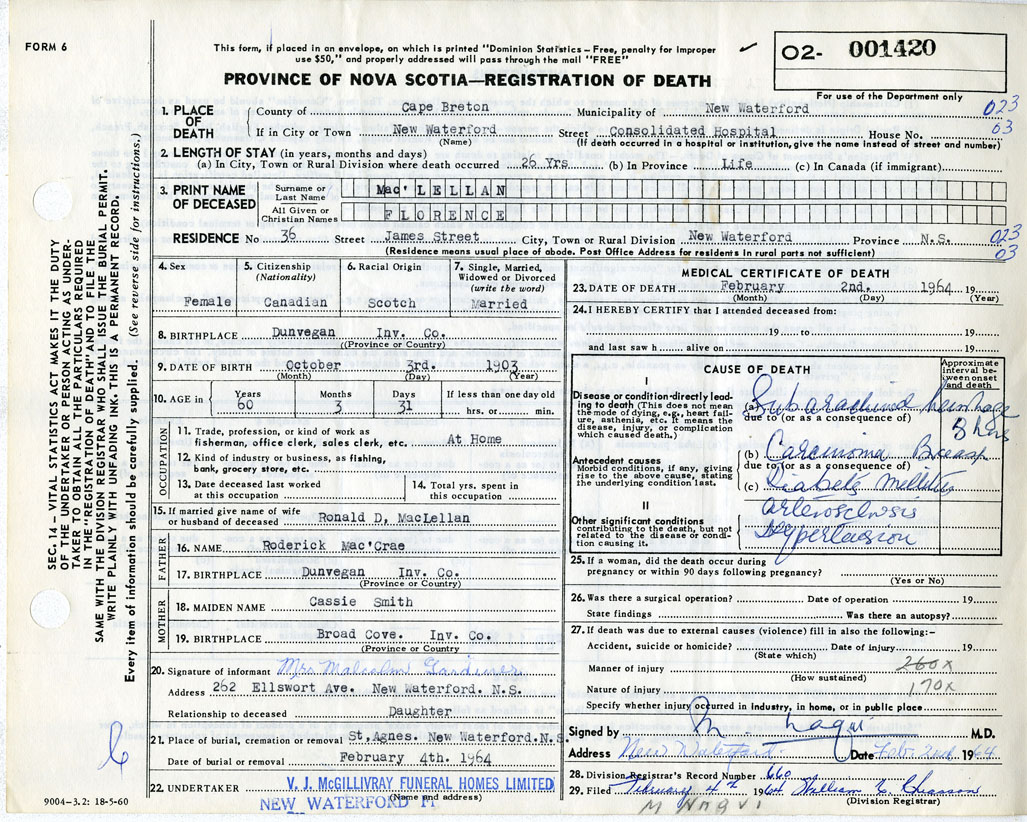 FORM 6
This form, if placed in an envelope, on which is printed "Dominion Statistics – Free, penalty for improper
use $50," and properly addressed will pass through the mail "FREE"
✓ O2- 001420
PROVINCE OF NOVA SCOTIA—REGISTRATION OF DEATH
For use of the Department only
1. PLACE OF DEATH
County of Cape Breton Municipality of New Waterford 023
If in City or Town New Waterford Street Consolidated Hospital House No. 63
(Name) (If death occurred in a hospital or institution, give the name instead of street and number)
2. LENGTH OF STAY (in years, months and days)
(a) In City, Town or Rural Division where death occurred 26 Yrs (b) In Province Life (c) In Canada (if immigrant)
3. PRINT NAME OF DECEASED
Surname or Last Name Mac'LELLAN
All Given or Christian Names FLORENCE
RESIDENCE No 36 Street James Street City, Town or Rural Division New Waterford Province N.S. 023
(Residence means usual place of abode. Post Office Address for residents in rural parts not sufficient) 03
4. Sex Female
5. Citizenship (Nationality) Canadian
6. Racial Origin Scotch
7. Single, Married, Widowed or Divorced (write the word) Married
8. BIRTHPLACE Dunvegan Inv. Co.
(Province or Country)
9. DATE OF BIRTH October 3rd. 1903
(Month) (Day) (Year)
10. AGE in Years 60 Months 3 Days 31 If less than one day old hrs. or min.
OCCUPATION
11. Trade, profession, or kind of work as fisherman, office clerk, sales clerk, etc. At Home
12. Kind of industry or business, as fishing, bank, grocery store, etc.
13. Date deceased last worked at this occupation
14. Total yrs. spent in this occupation
15. If married give name of wife or husband of deceased Ronald D, MacLellan
FATHER
16. NAME Roderick Mac'Crae
17. BIRTHPLACE Dunvegan Inv. Co.
(Province or Country)
MOTHER
18. MAIDEN NAME Cassie Smith
19. BIRTHPLACE Broad Cove. Inv. Co.
(Province or Country
20. Signature of informant Mrs Malcolm Gardiner
Address 262 Ellswort Ave. New Waterford. N.S.
Relationship to deceased Daughter
21. Place of burial, cremation or removal St, Agnes. New Waterford. N.S.
Date of burial or removal February 4th. 1964
22. UNDERTAKER V. J. McGILLIVRAY FUNERAL HOMES LIMITED
(Name and address)
NEW WATERFORD
9004–3.2: 18-5-60
MEDICAL CERTIFICATE OF DEATH
23. DATE OF DEATH February 2nd. 1964 19
(Month) (Day) (Year)
24. I HEREBY CERTIFY that I attended deceased from:
19 to 19
and last saw h alive on 19
CAUSE OF DEATH
Approximate interval between onset and death
I
Disease or condition directly leading to death (This does not mean the mode of dying, e.g., heart failure, asthenia, etc. It means the disease, injury, or complication which caused death.)
(a) Subarachnoid hemorhage
due to (or as a consequence of) 3 hrs
Antecedent causes
Morbid conditions, if any, giving rise to the above cause, stating the underlying condition last.
(b) Carcinoma Breast
due to (or as a consequence of)
(c) Diabetes Mellitus
II
Other significant conditions contributing to the death, but not related to the disease or condition causing it.
Hypertension
25. If a woman, did the death occur during pregnancy or within 90 days following pregnancy?
(Yes or No)
26. Was there a surgical operation? Date of operation 19
State findings Was there an autopsy?
27. If death was due to external causes (violence) fill in also the following:–
Accident, suicide or homicide? Date of injury 19
(State which) 260x
Manner of injury
(How sustained)
Nature of injury 170x
Specify whether injury occurred in industry, in home, or in public place
Signed by M. Naqui M.D.
Address New Waterford Date Feb. 2nd 1964
28. Division Registrar's Record Number 660
29. Filed February 4th 1964 William C. Chiasson
(Division Registrar)
SEC. 14 – VITAL STATISTICS ACT MAKES IT THE DUTY
OF THE UNDERTAKER OR PERSON ACTING AS UNDER-
TAKER TO OBTAIN ALL THE PARTICULARS REQUIRED
IN THE "REGISTRATION OF DEATH" AND TO FILE THE
SAME WITH THE DIVISION REGISTRAR WHO SHALL ISSUE THE BURIAL PERMIT.
WRITE PLAINLY WITH UNFADING INK. THIS IS A PERMANENT RECORD.
Every item of information should be carefully supplied. (See reverse side for instructions.)